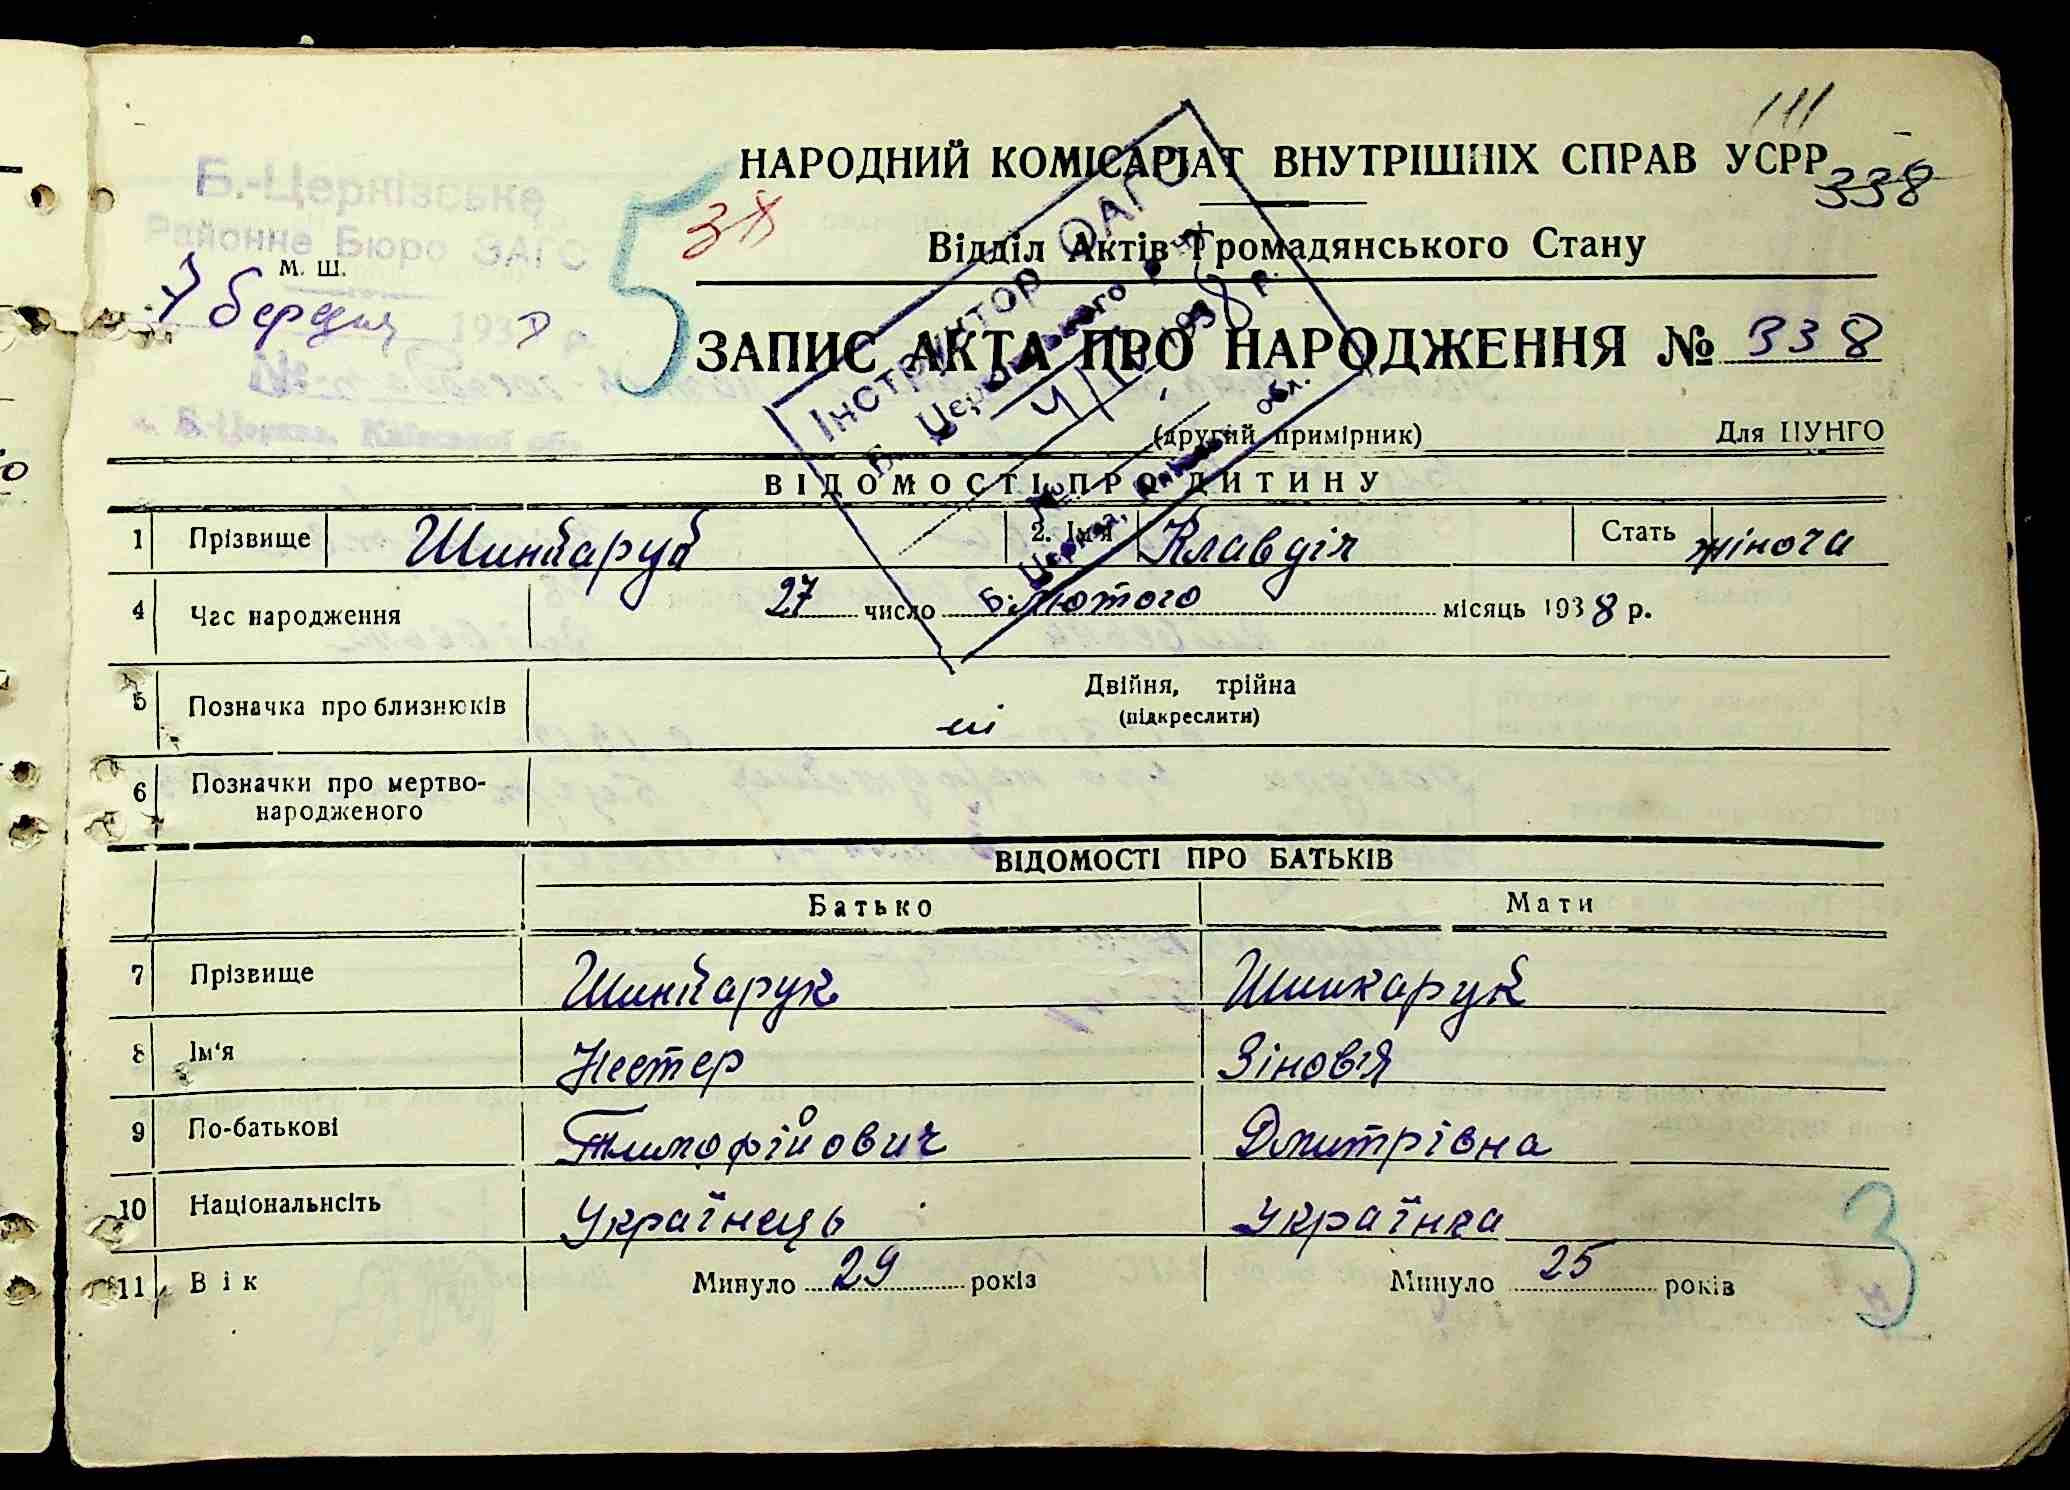 111
НАРОДНИЙ КОМІСАРІАТ ВНУТРІШНІХ СПРАВ УСРР
338
Б.-Церківське
Районне Бюро ЗАГС
5
38
Відділ Актів Громадянського Стану
М. Ш.
7 березня 193
ЗАПИС АКТА ПРО НАРОДЖЕННЯ № 338
(другий примірник)
Для ЦУНГО
Інструктор ОАГС
Б. Церківського р-ну
4/IV 1938 р.
№
Б. Церква, Київської обл.
ВІДОМОСТІ ПРО ДИТИНУ
1 Прізвище Шинкарук 2. Ім'я Клавдія Стать жіноча
4 Час народження 27 число лютого місяць 1938 р.
5 Позначка про близнюків ні Двійня, трійна
(підкреслити)
6 Позначки про мертво-
народженого
ВІДОМОСТІ ПРО БАТЬКІВ
Батько Мати
7 Прізвище Шинкарук Шинкарук
8 Ім'я Нестер Зіновія
9 По-батькові Тимофійович Дмитрівна
10 Національність Українець Українка
11 Вік Минуло 29 років Минуло 25 років
3